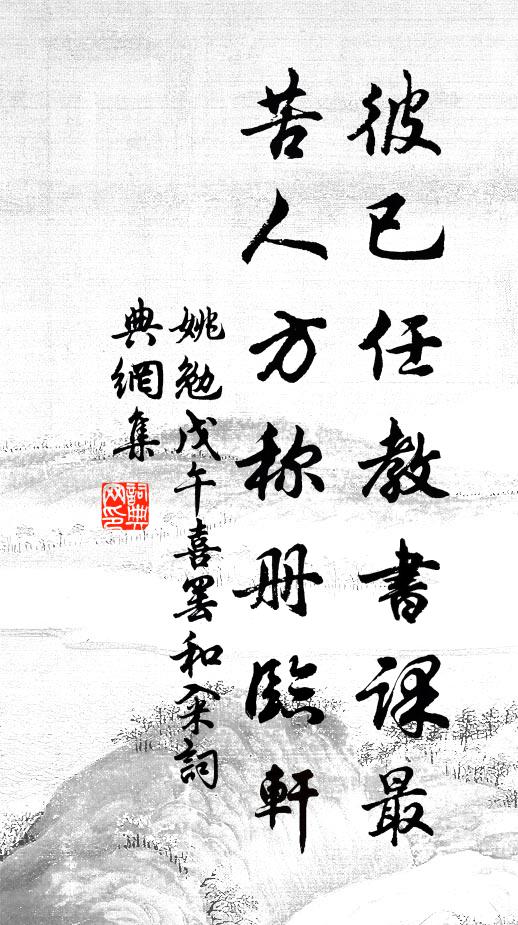 彼已任教書課最
苦人方称册臨軒
姚勉戊午喜罢和籴詞
典網集
詞典网印